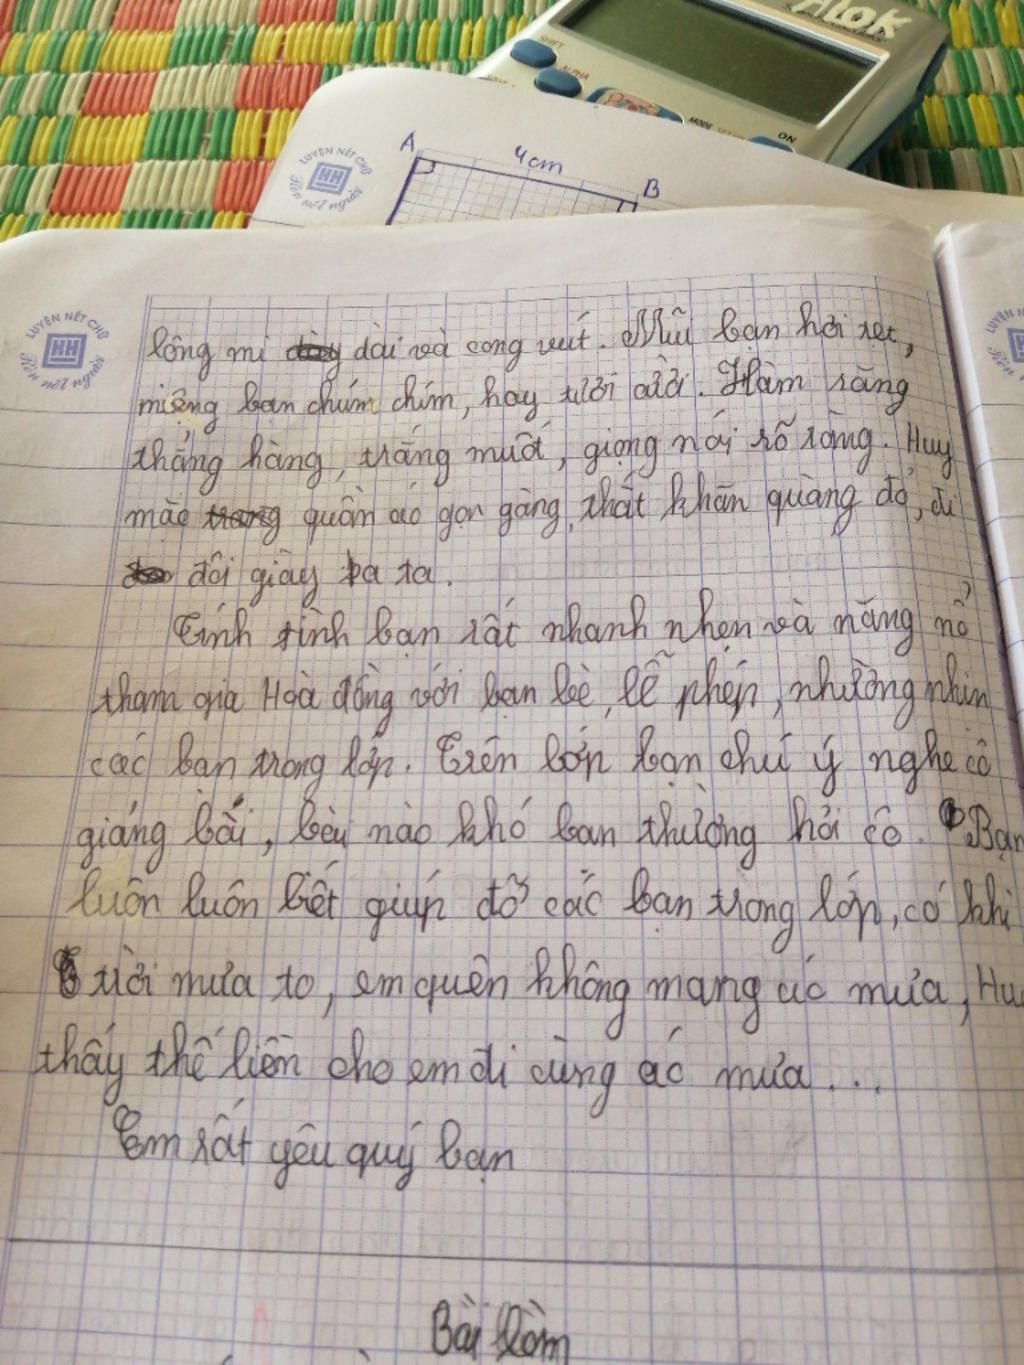 Alok
SHIFT
ALPHA
MODE
ON
LUYỆN NÉT CHỮ
HH
Rèn nết người
A
4cm
B
LUYỆN NÉT CHỮ
HH
Rèn nết người
lông mi dài và cong vút. Mũi bạn hơi
miệng bạn chúm chím, hay Hàm răng
thẳng hàng, trắng muốt, giọng nói rõ ràng. Huy
mặc quần áo gọn gàng, thắt khăn quàng đỏ, đi
đôi giày ba ta.
Tính tình bạn rất nhanh nhẹn và năng nổ
tham gia Hoà đồng với bạn bè, lễ phép, nhường nhịn
các bạn trong lớp. Trên lớp bạn chú ý nghe cô
giảng bài, nào khó bạn thường hỏi cô. Bạn
luôn luôn biết giúp đỡ các bạn trong lớp, có khi
trời mưa to, em quên không mang áo mưa, Hu
thấy thế liền cho em đi cùng áo mưa...
Em rất yêu quý bạn
Bài làm